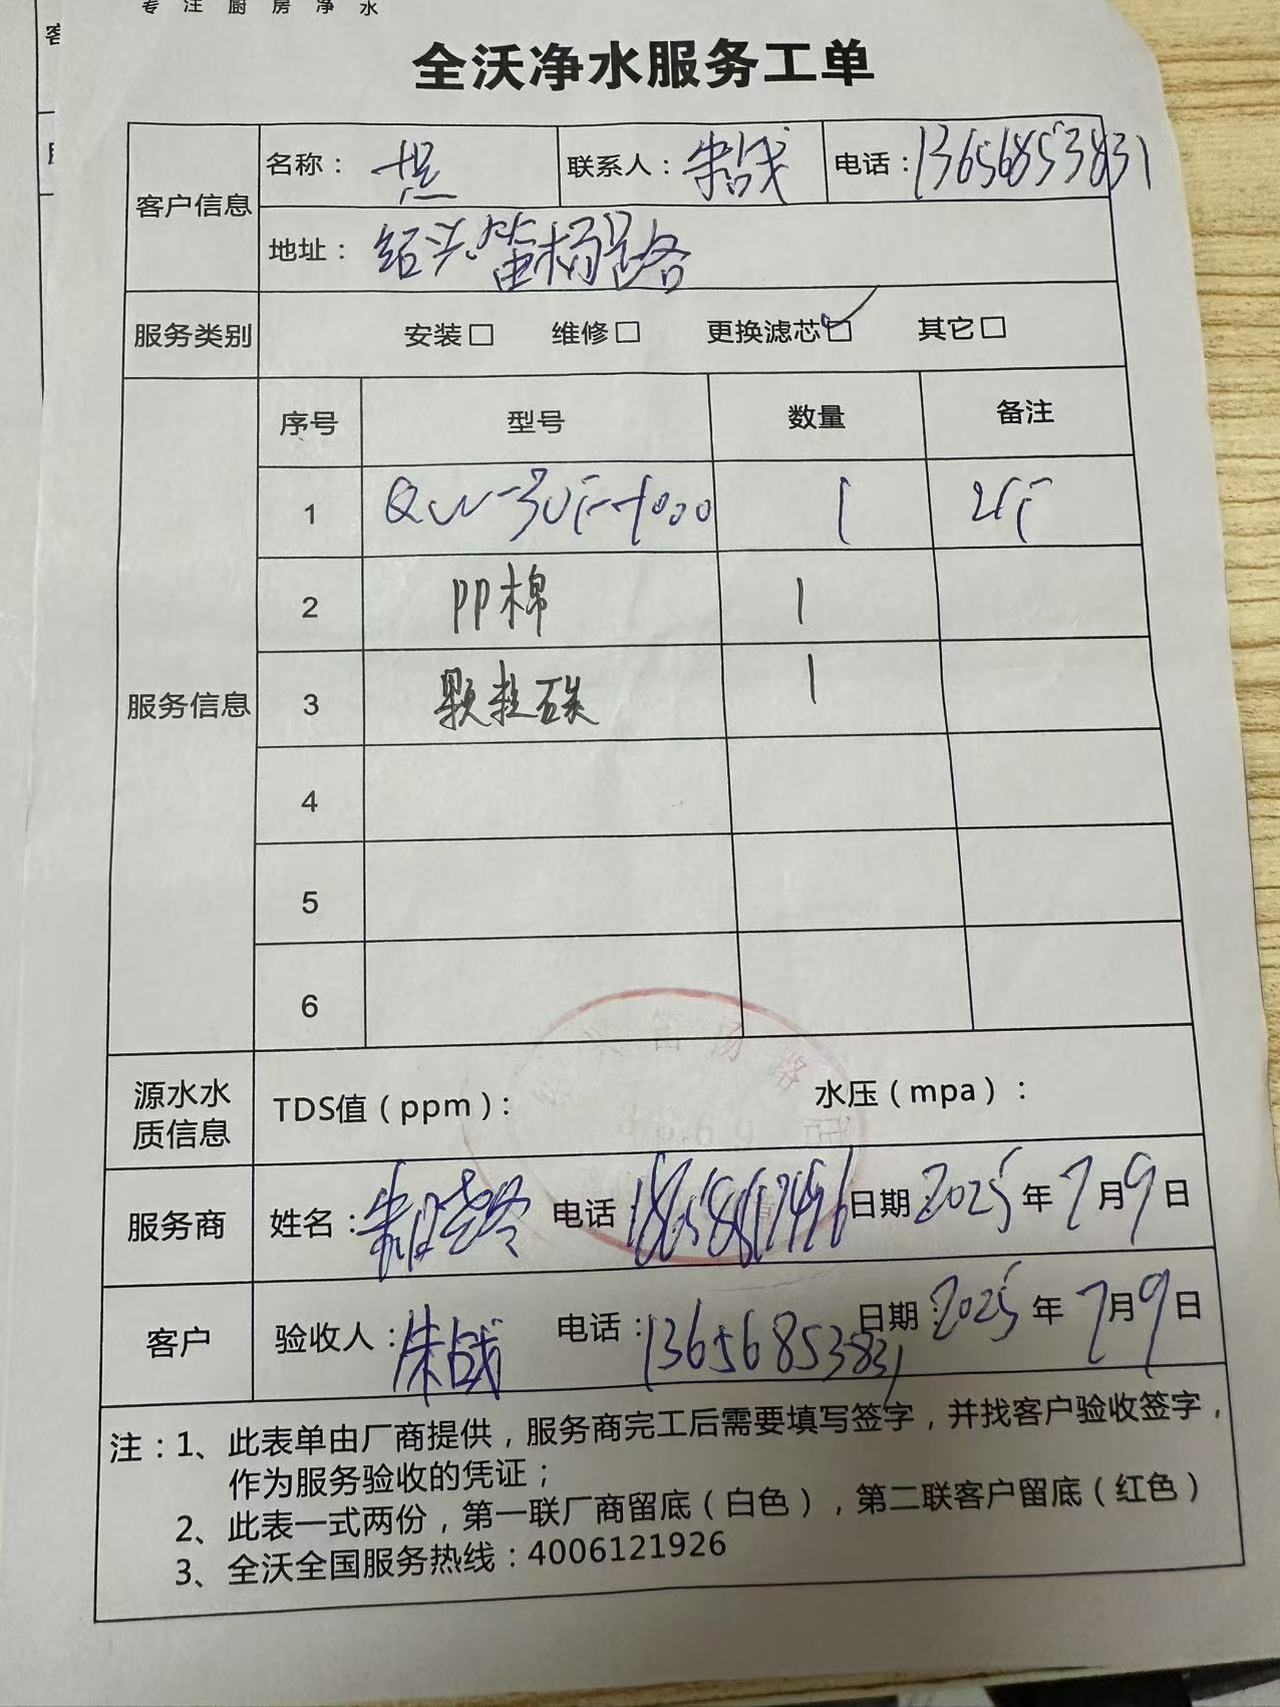 专注厨房净水
全沃净水服务工单
客户信息
名称：
联系人：朱战
电话：13656853831
地址：绍兴笛扬路
服务类别
安装□ 维修□ 更换滤芯☑ 其它□
服务信息
序号 型号 数量 备注
1 1
2 PP棉 1
3 颗粒碳 1
4
5
6
源水水质信息
TDS值（ppm）： 水压（mpa）：
服务商
姓名： 电话： 日期 2025年7月9日
客户
验收人：朱战 电话：13656853831 日期：2025年7月9日
注：1、此表单由厂商提供，服务商完工后需要填写签字，并找客户验收签字，
作为服务验收的凭证；
2、此表一式两份，第一联厂商留底（白色），第二联客户留底（红色）
3、全沃全国服务热线：4006121926